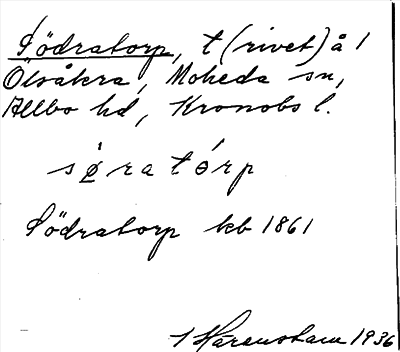 Södratorp, t (rivet) å 1
Ölsåkra, Moheda sn,
Allbo hd, Kronobs l.
sø̀ratórp
Södratorp kb 1861
1 Härenstam 1936